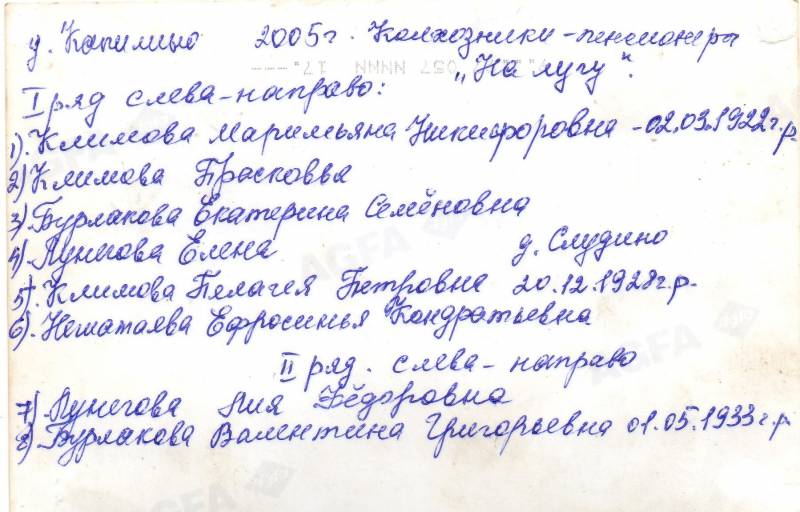 д. Капилино 2005г. Колхозники-пенсионеры
„На лугу".
I ряд слева-направо:
1). Климова Маримьяна Никифоровна - 02.03.1922г.р
2) Климова Прасковья
3) Бурлакова Екатерина Семёновна
4) Лунегова Елена д. Слудино
5). Климова Пелагея Петровна 20.12.1928г.р.
6). Нематаева Ефросинья Кондратьевна
II ряд. слева-направо
7) Лунегова Лия Фёдоровна
8) Бурлакова Валентина Григорьевна 01.05.1933г.р.
AGFA